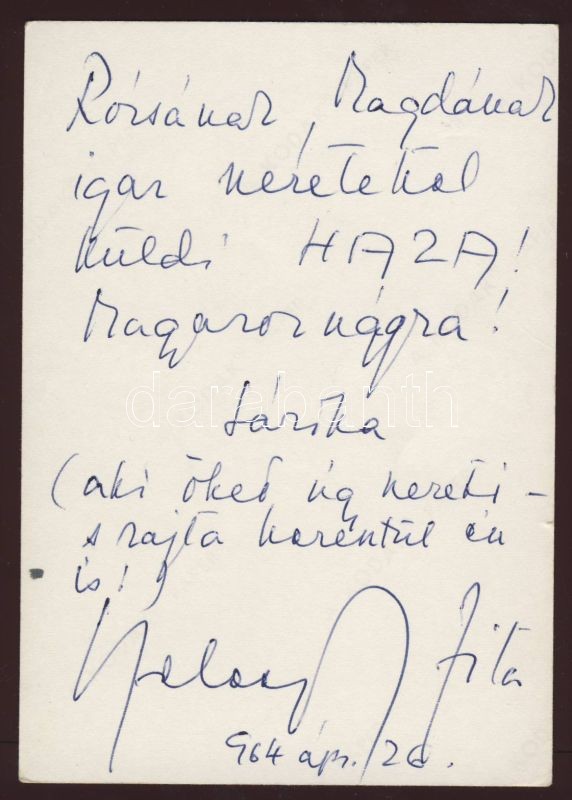 Rózsának, Magdának
igaz szeretettel
küldi HAZA!
Magyarországra!
Sárika
(aki őket úgy szereti –
s rajta keresztül én
is!)
Szeleczky Zita
964 ápr. 26.
darabanth